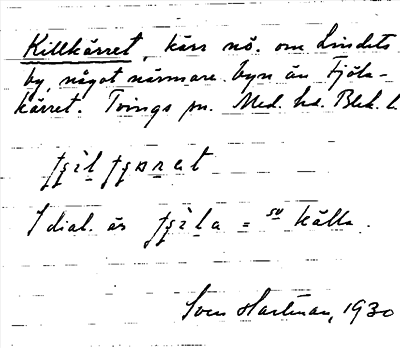 Killkärret, kärr nö. om Lindets
by, något närmare byn än Fjöla-
kärret. Tvings sn. Med. hd. Blek. l.
I dial. är = sv källa.
Sven Hartman, 1930